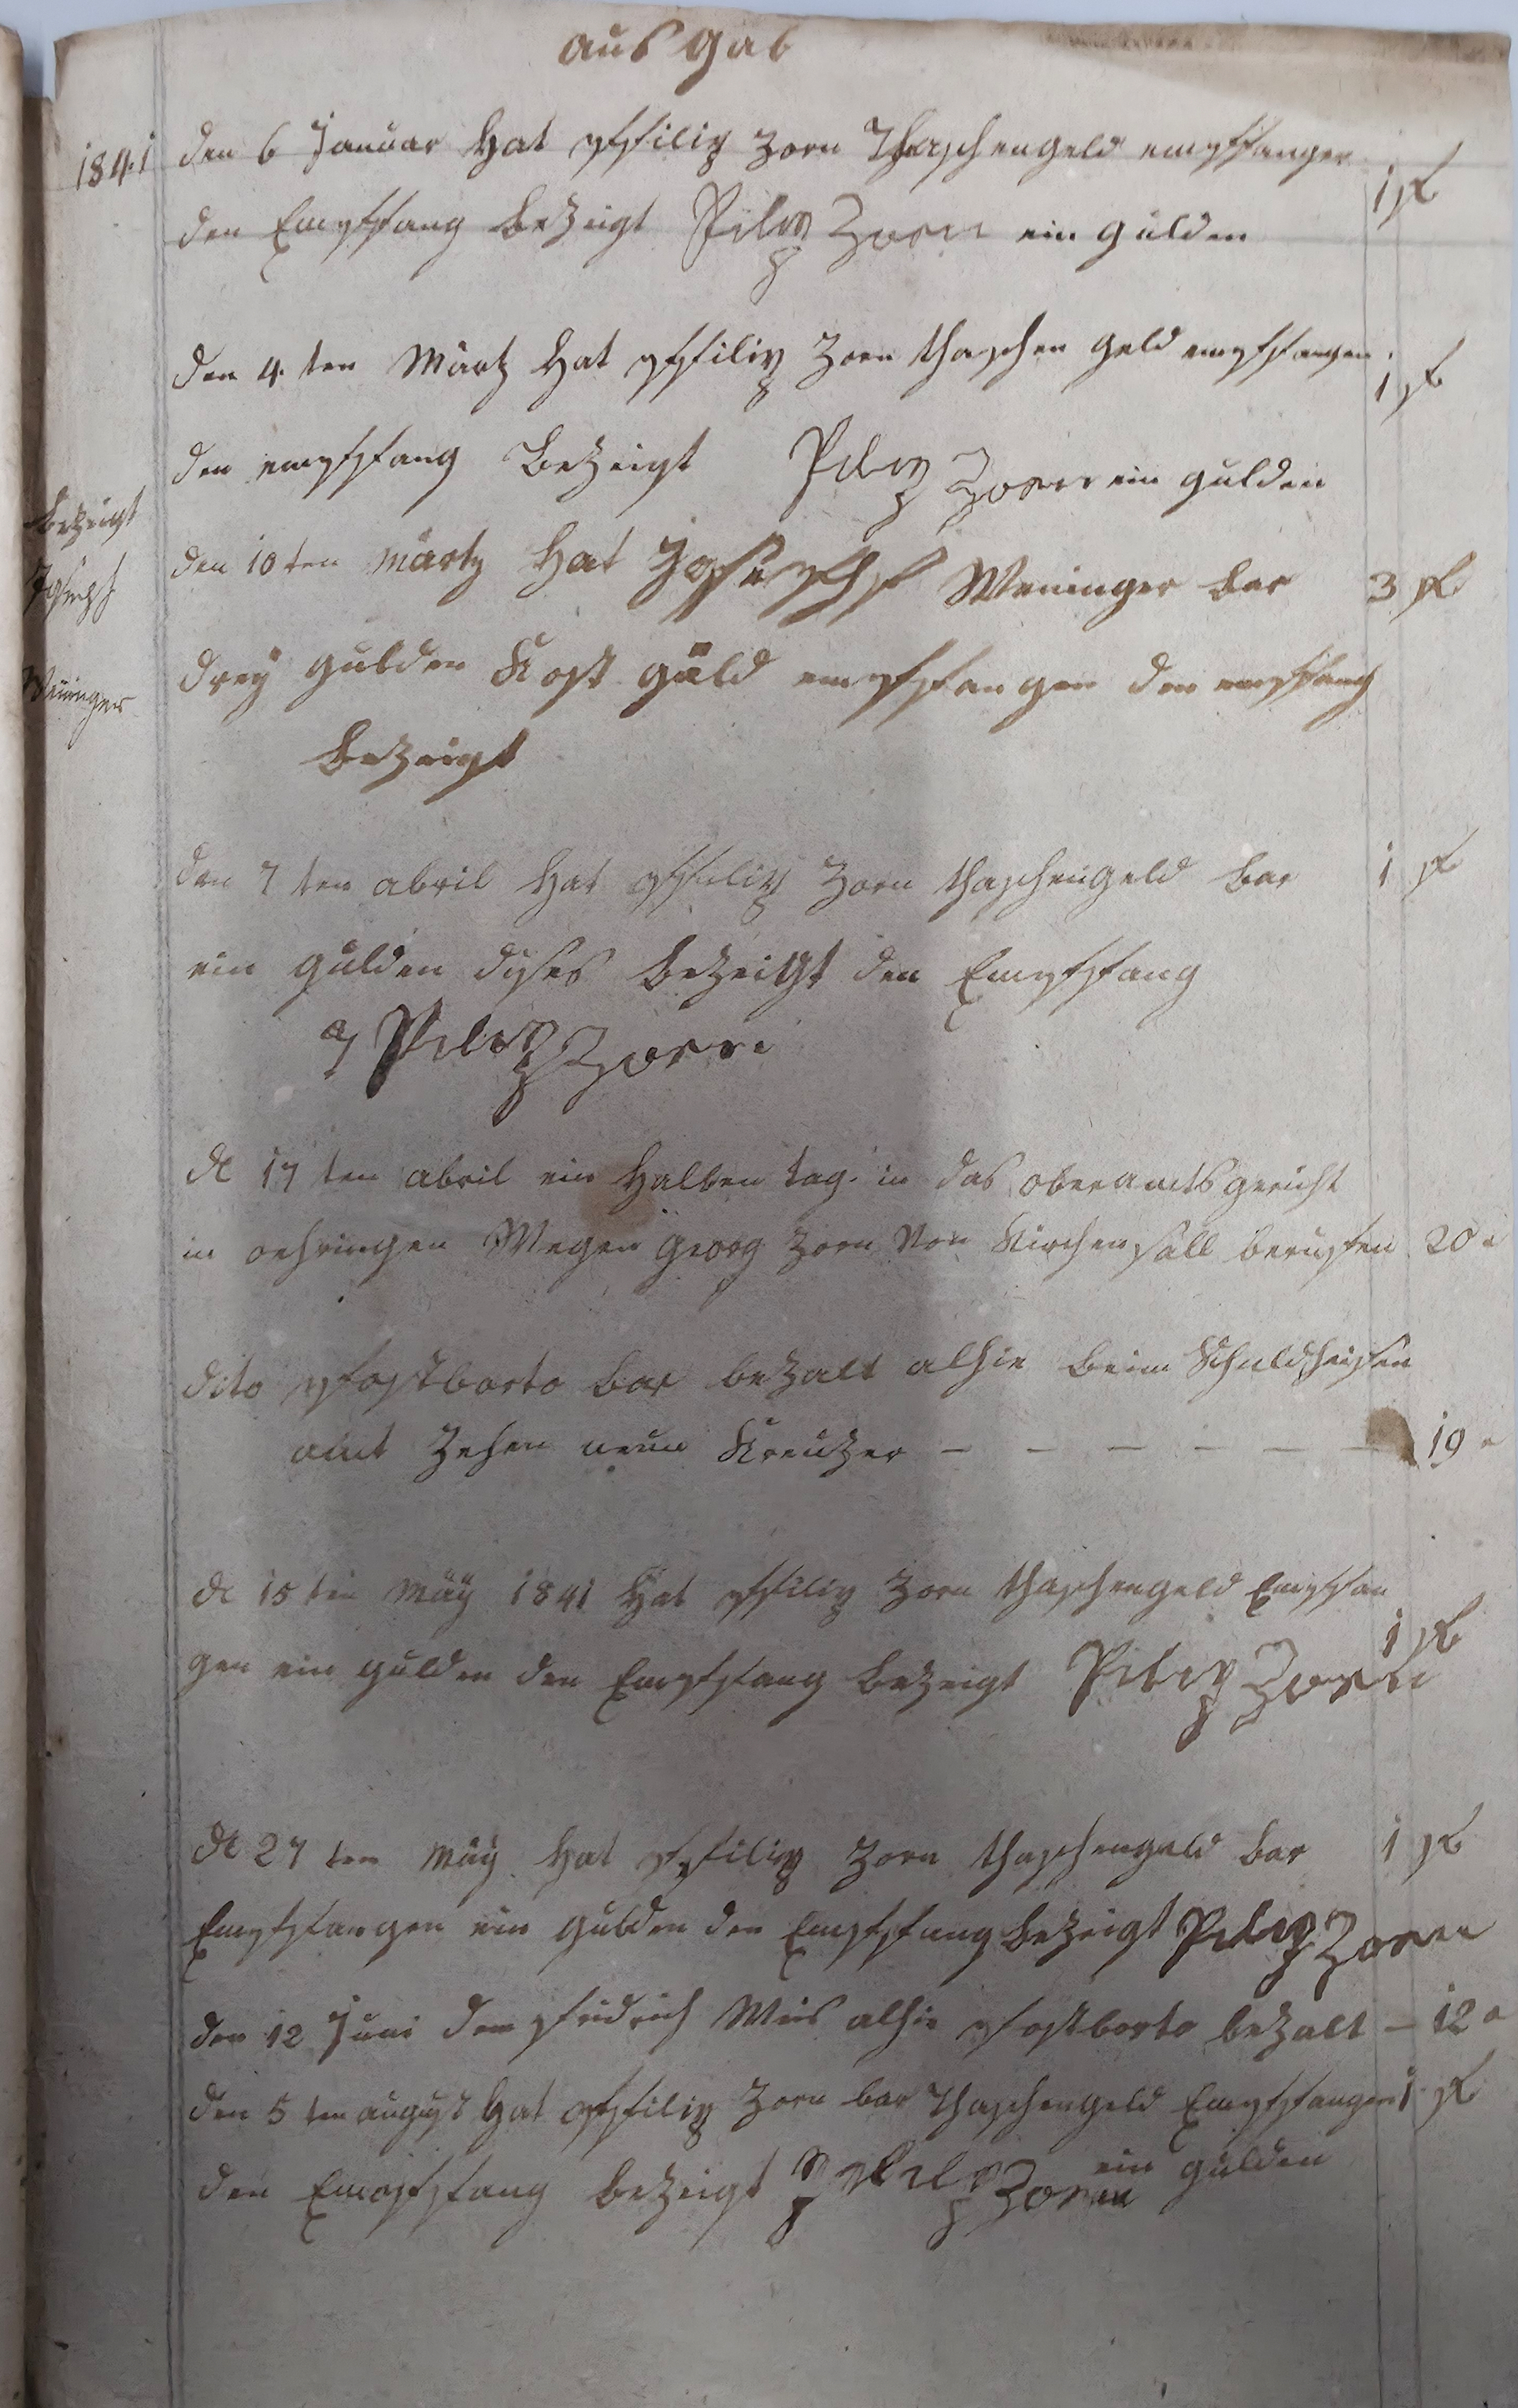 aus Gab
1841 den 6 Januar Hat pffilip Zorn Thaschengeld empffangen 1 fl
den Empffang bezeigt Pilip Zorn ein gulden
den 4 ten Märtz Hat pffilip Zorn thaschen geld empffangen 1 fl
den empffang Bezeigt Pilip Zorn ein gulden
den 10 ten märtz Hat Joseph Weninger bar 3 fl
drey gulden Kost gäld empffangen den empffang
bezeigt
bezeigt
Joseph
Weninger
den 7 ten abril Hat pffilip Zorn thaschengeld bar 1 fl
ein gulden dises bezeigt den Empffang
Pilip Zorn
d 17 ten abril ein Halben tag in das oberamtsgericht
in oehringen Wegen Georg Zorn Von Kirchensall beruffen 20 x
dito pfostborto bar bezalt alhie beim Schuldheisen
amt Zehen neun Kreuzer — — — — — — 19 x
d 15 ten Mäy 1841 Hat pffilip Zorn thaschengeld Empffan
gen ein gulden den Empffang bezeigt Pilip Zorn 1 fl
d 27 ten Mäy Hat pffilip Zorn thaschengeld bar 1 fl
Empffangen ein gulden den Empffang bezeigt Pilip Zorn
den 12 Juni dem fridrich Weis alhie pfostborto bezalt — 12 x
den 5 ten august Hat pffilip Zorn bar Thaschengeld Empffangen 1 fl
den Empffang bezeigt Pilip Zorn ein gulden